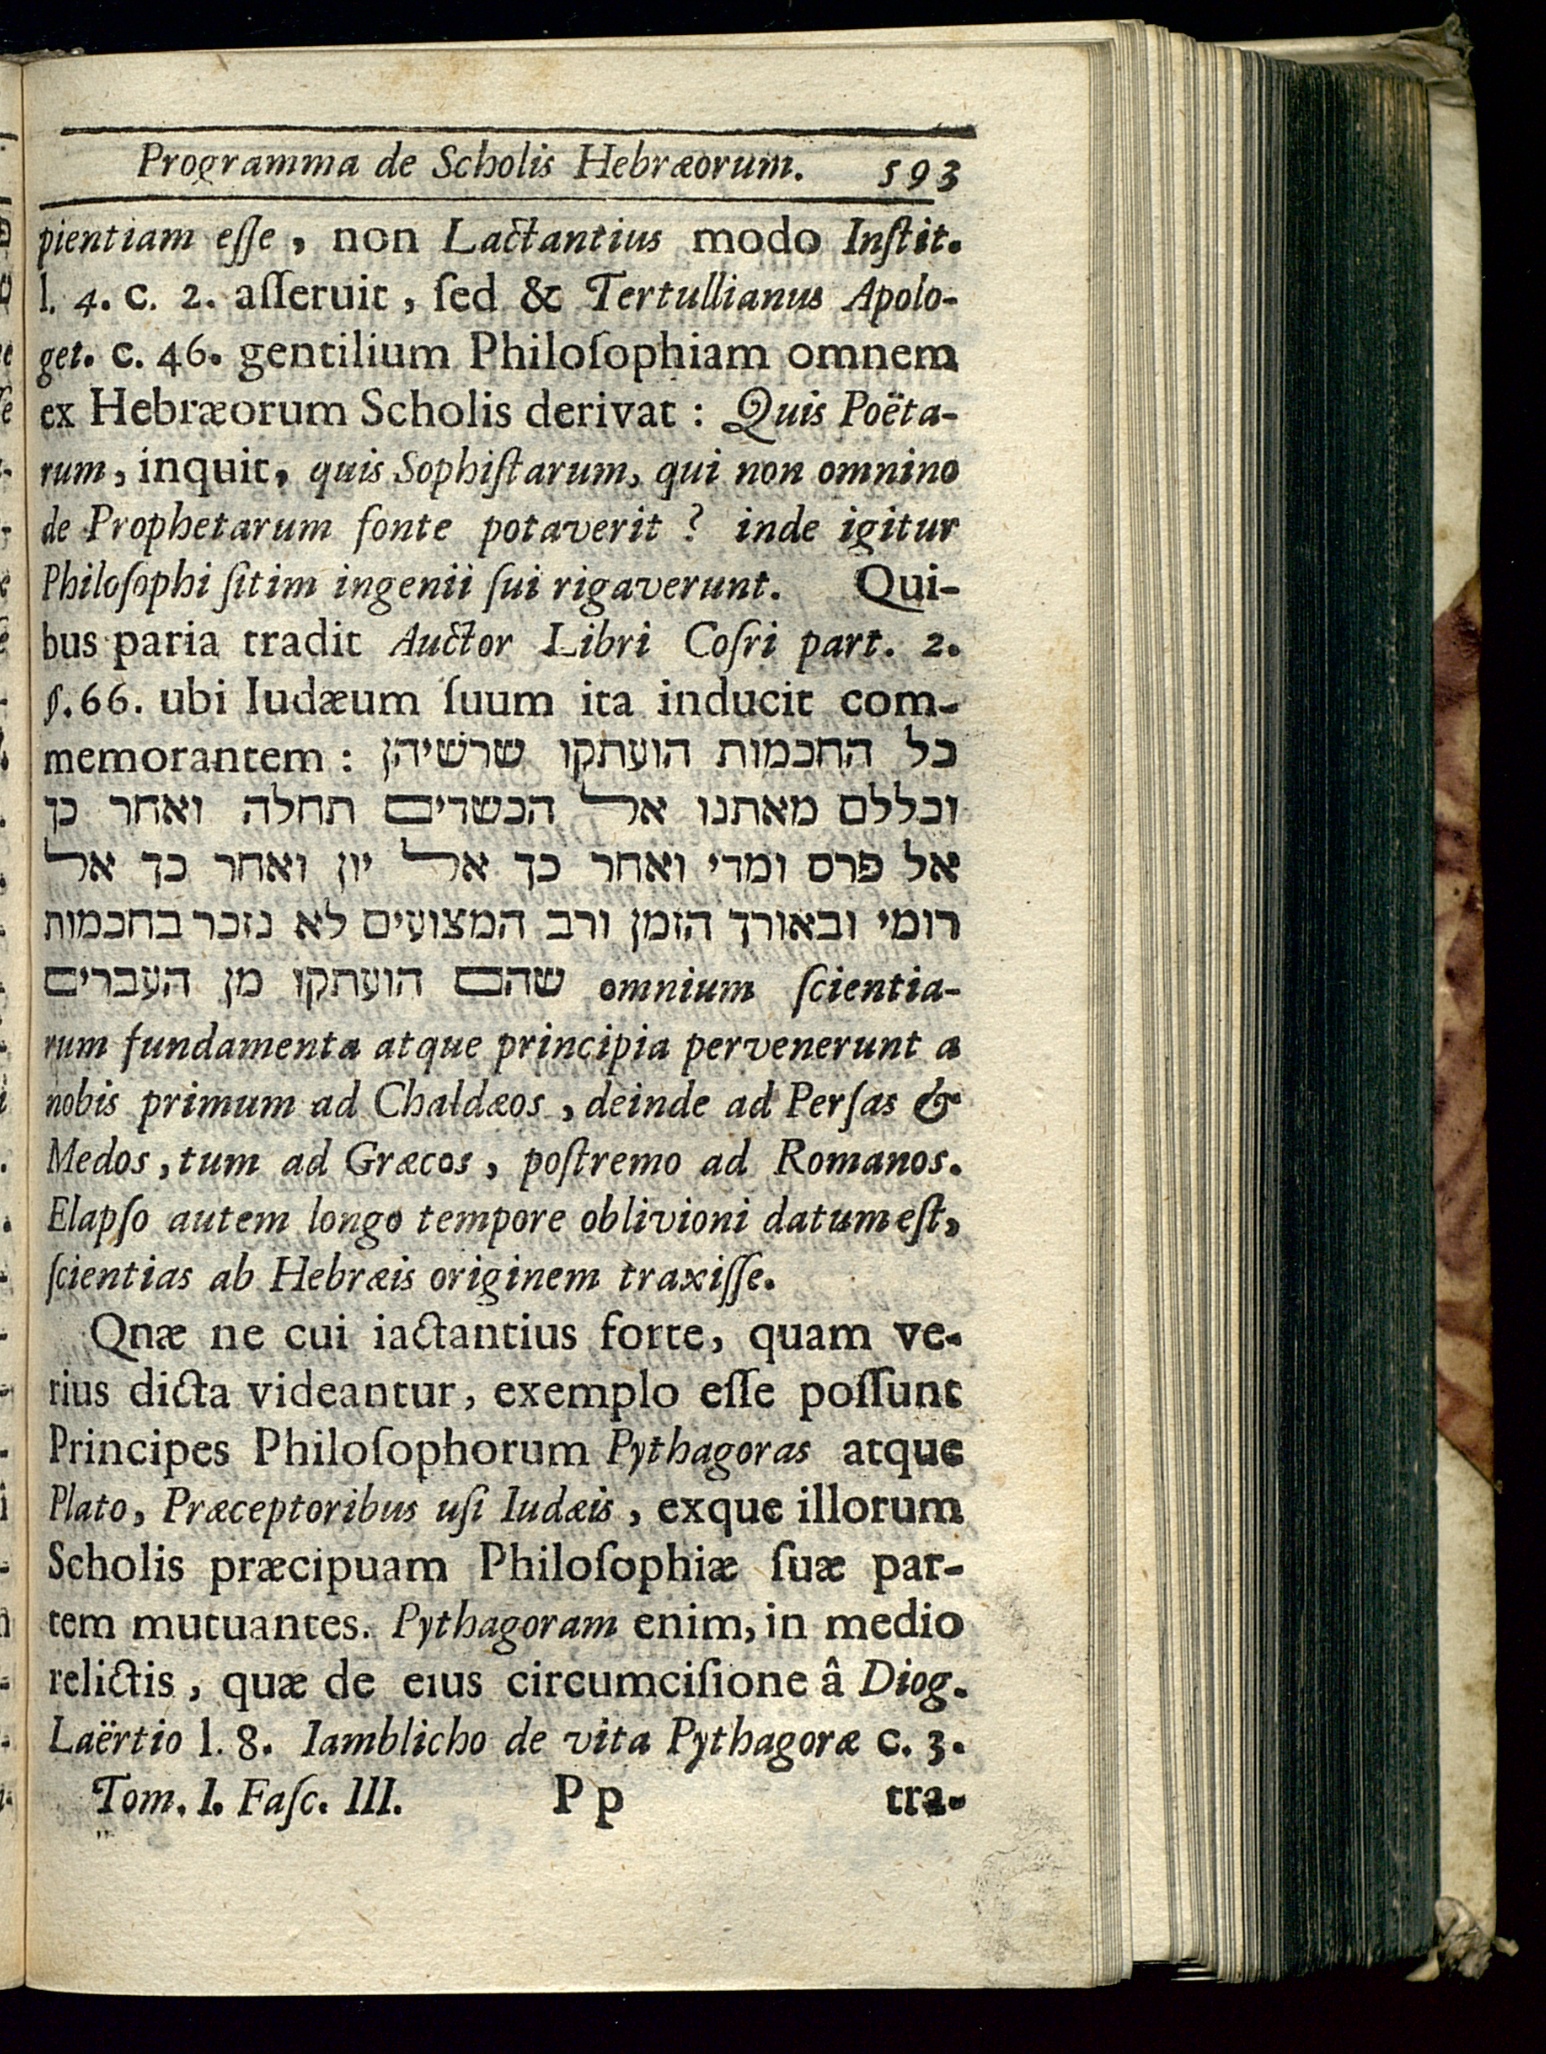 Programma de Scholis Hebræorum. 593
pientiam eſſe, non Lactantius modo Inſtit.
l. 4. c. 2. aſſeruit, ſed & Tertullianus Apolo-
get. c. 46. gentilium Philoſophiam omnem
ex Hebræorum Scholis derivat: Quis Poëta-
rum, inquit, quis Sophiſtarum, qui non omnino
de Prophetarum fonte potaverit? inde igitur
Philoſophi ſitim ingenii ſui rigaverunt. Qui-
bus paria tradit Auctor Libri Coſri part. 2.
§. 66. ubi Iudæum ſuum ita inducit com-
memorantem: כל החכמות הועתקו שרשיהן
וכללם מאתנו אל הכשדים תחלה ואחר כן
אל פרס ומדי ואחר כך אל יון ואחר כך אל
רומי ובאורך הזמן ורב המצועים לא נזכר בחכמות
שהם הועתקו מן העברים omnium ſcientia-
rum fundamenta atque principia pervenerunt a
nobis primum ad Chaldæos, deinde ad Perſas &
Medos, tum ad Græcos, poſtremo ad Romanos.
Elapſo autem longo tempore oblivioni datum eſt,
ſcientias ab Hebræis originem traxiſſe.
Qnæ ne cui iactantius forte, quam ve-
rius dicta videantur, exemplo eſſe poſſunt
Principes Philoſophorum Pythagoras atque
Plato, Præceptoribus uſi Iudæis, exque illorum
Scholis præcipuam Philoſophiæ ſuæ par-
tem mutuantes. Pythagoram enim, in medio
relictis, quæ de eius circumciſione â Diog.
Laërtio l. 8. Iamblicho de vita Pythagoræ c. 3.
Tom. I. Faſc. III. Pp tra-